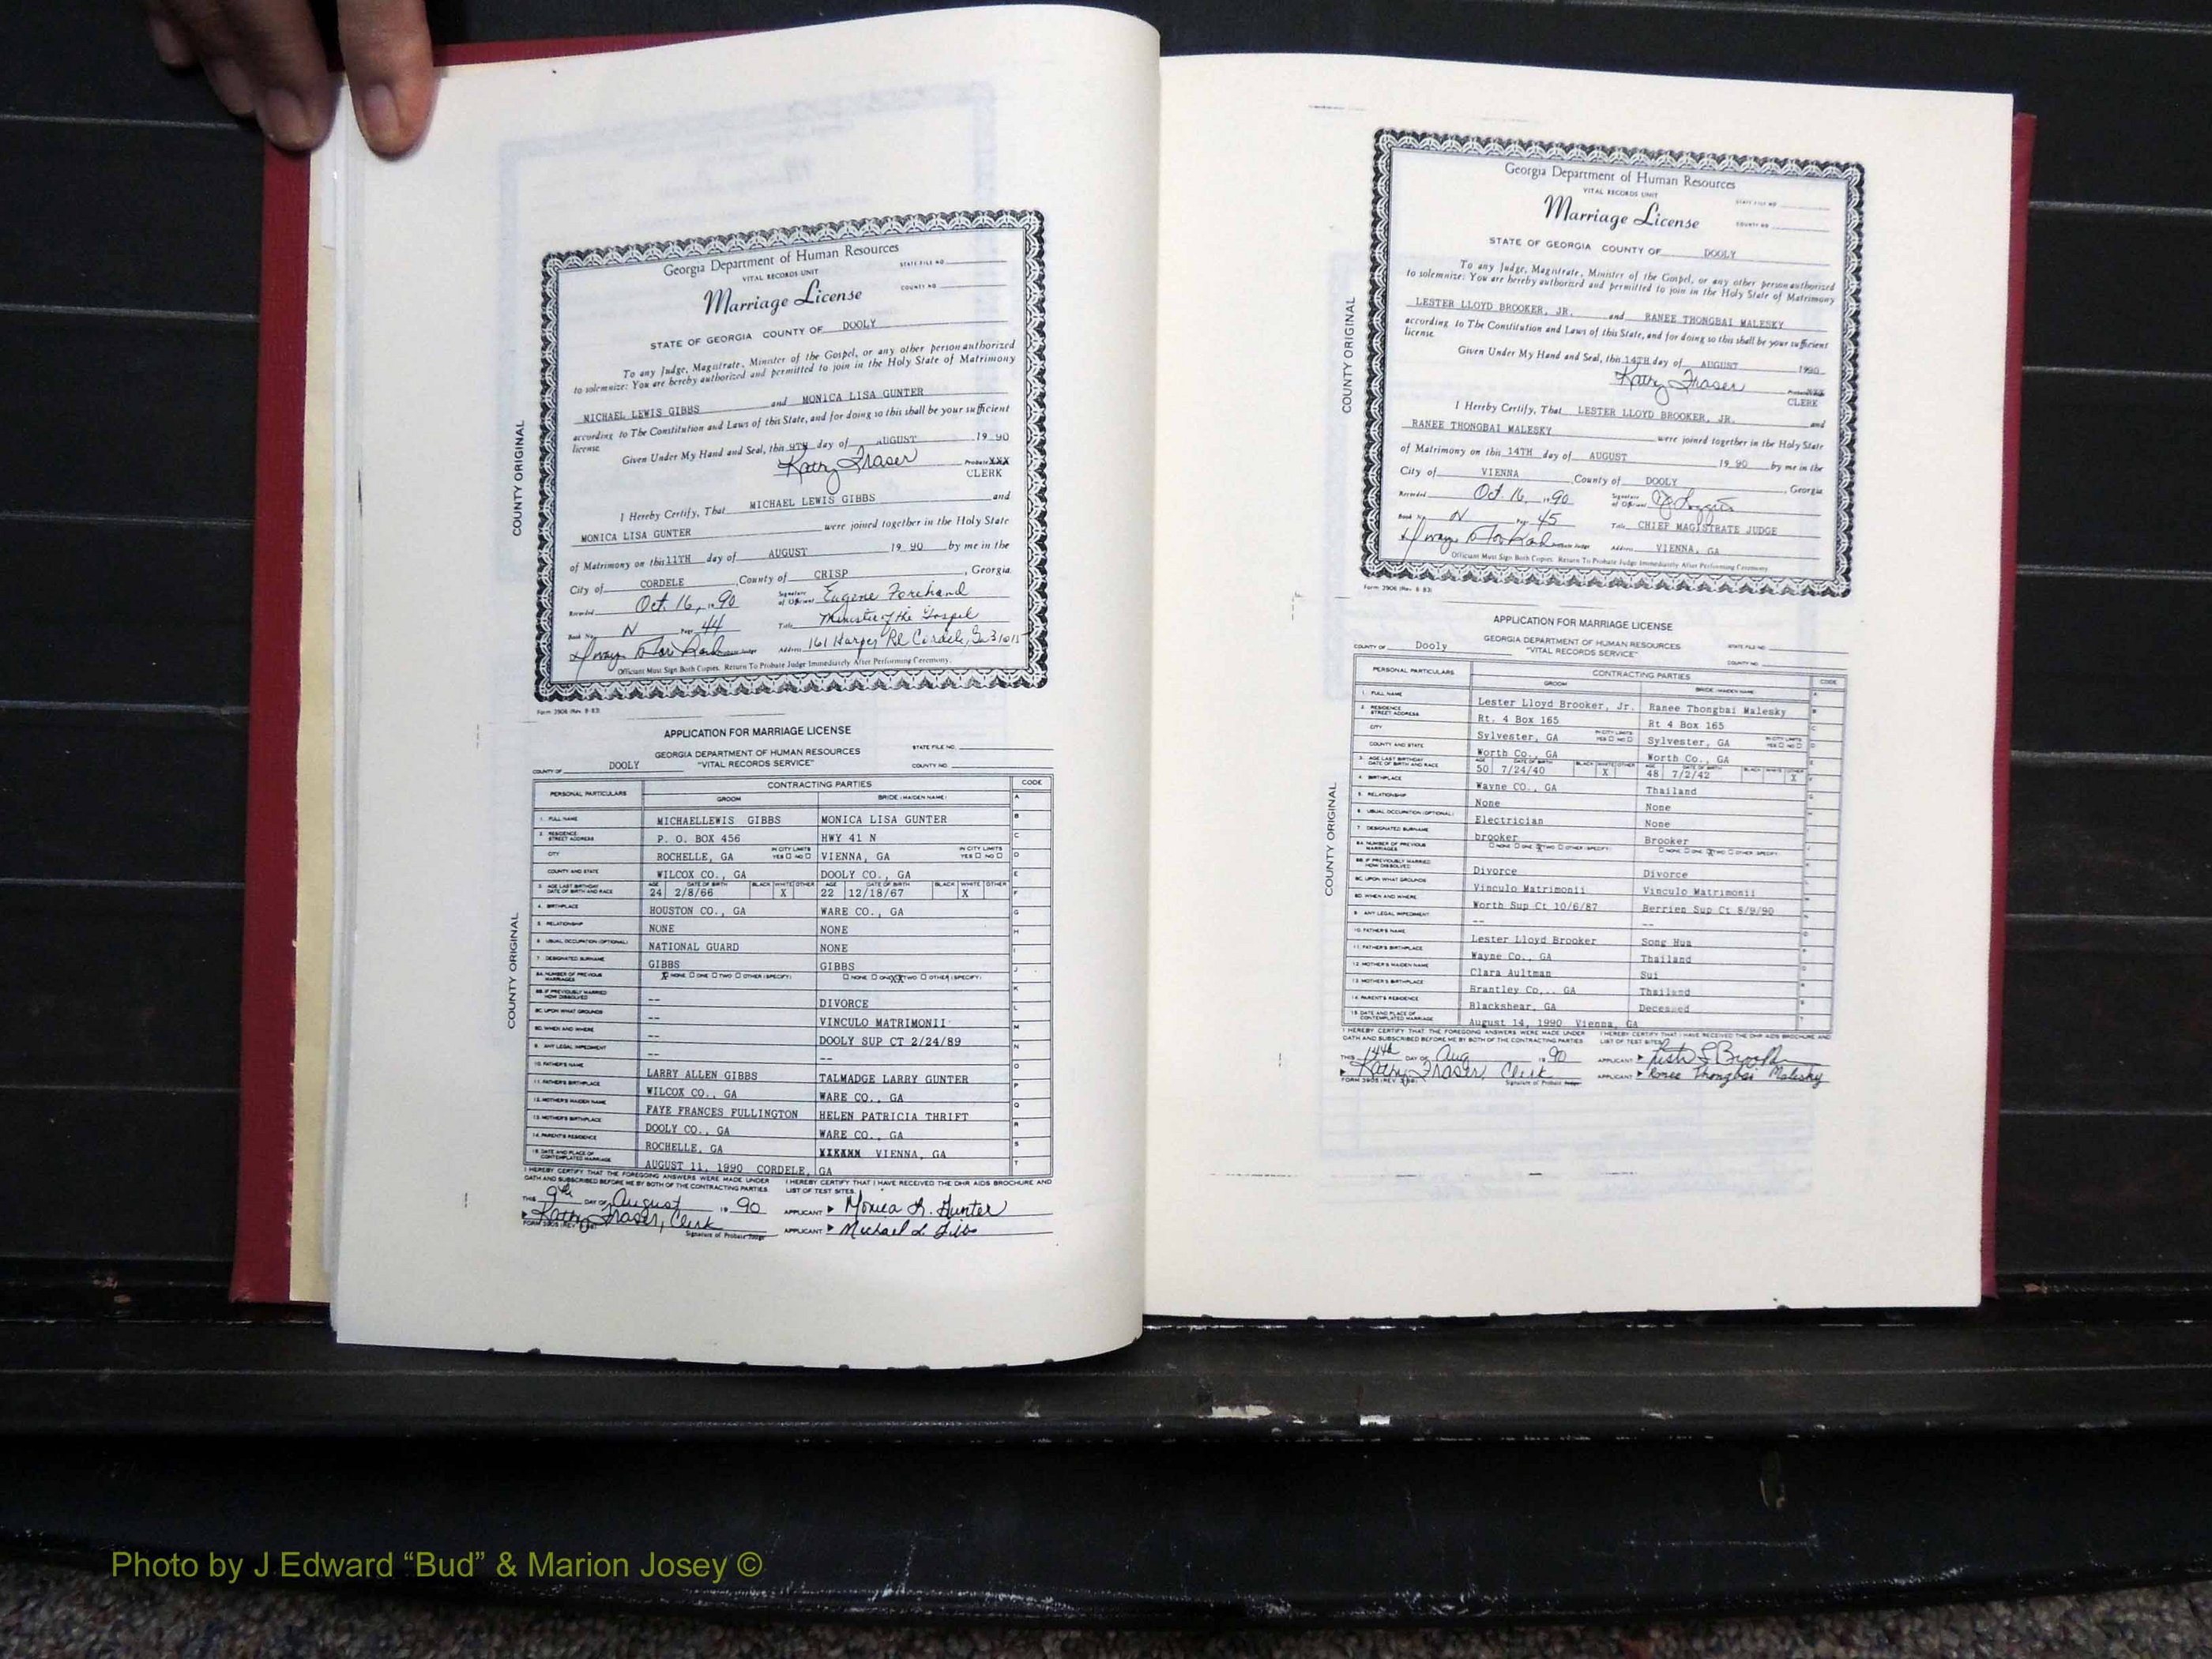 Georgia Department of Human Resources
VITAL RECORDS UNIT
STATE FILE NO
Marriage License
COUNTY NO
STATE OF GEORGIA COUNTY OF DOOLY
To any Judge, Magistrate, Minister of the Gospel, or any other person authorized
to solemnize: You are hereby authorized and permitted to join in the Holy State of Matrimony
MICHAEL LEWIS GIBBS and MONICA LISA GUNTER
according to The Constitution and Laws of this State, and for doing so this shall be your sufficient
license
Given Under My Hand and Seal, this 9TH day of AUGUST 19 90
Kathy Fraser
Probate XXX
CLERK
I Hereby Certify, That MICHAEL LEWIS GIBBS and
MONICA LISA GUNTER were joined together in the Holy State
of Matrimony on this 11TH day of AUGUST 19 90 by me in the
City of CORDELE, County of CRISP, Georgia.
Recorded Oct. 16, 1990 Signature of Official Eugene Forehand
Book No. N Page 44 Title Minister of the Gospel
Address 161 Harper Rd Cordele, Ga 31015
Officiant Must Sign Both Copies. Return To Probate Judge Immediately After Performing Ceremony.
Form 3906 (Rev. 8-83)
COUNTY ORIGINAL
APPLICATION FOR MARRIAGE LICENSE
GEORGIA DEPARTMENT OF HUMAN RESOURCES
STATE FILE NO.
COUNTY OF DOOLY "VITAL RECORDS SERVICE" COUNTY NO.
PERSONAL PARTICULARS CONTRACTING PARTIES CODE
GROOM BRIDE (MAIDEN NAME)
1. FULL NAME MICHAELLEWIS GIBBS MONICA LISA GUNTER
2. RESIDENCE STREET ADDRESS P. O. BOX 456 HWY 41 N
CITY ROCHELLE, GA IN CITY LIMITS YES NO VIENNA, GA IN CITY LIMITS YES NO
COUNTY AND STATE WILCOX CO., GA DOOLY CO., GA
3. AGE LAST BIRTHDAY DATE OF BIRTH AND RACE AGE 24 DATE OF BIRTH 2/8/66 BLACK WHITE X OTHER AGE 22 DATE OF BIRTH 12/18/67 BLACK WHITE X OTHER
4. BIRTHPLACE HOUSTON CO., GA WARE CO., GA
5. RELATIONSHIP NONE NONE
6. USUAL OCCUPATION (OPTIONAL) NATIONAL GUARD NONE
7. DESIGNATED SURNAME GIBBS GIBBS
8A. NUMBER OF PREVIOUS MARRIAGES X NONE ONE TWO OTHER (SPECIFY) NONE ONE XX TWO OTHER (SPECIFY)
8B. IF PREVIOUSLY MARRIED HOW DISSOLVED -- DIVORCE
8C. UPON WHAT GROUNDS -- VINCULO MATRIMONII
8D. WHEN AND WHERE -- DOOLY SUP CT 2/24/89
9. ANY LEGAL IMPEDIMENT -- --
10. FATHER'S NAME LARRY ALLEN GIBBS TALMADGE LARRY GUNTER
11. FATHER'S BIRTHPLACE WILCOX CO., GA WARE CO., GA
12. MOTHER'S MAIDEN NAME FAYE FRANCES FULLINGTON HELEN PATRICIA THRIFT
13. MOTHER'S BIRTHPLACE DOOLY CO., GA WARE CO., GA
14. PARENT'S RESIDENCE ROCHELLE, GA VIENNA, GA
15. DATE AND PLACE OF CONTEMPLATED MARRIAGE AUGUST 11, 1990 CORDELE, GA
A
B
C
D
E
F
G
H
I
J
K
L
M
N
O
P
Q
R
S
T
COUNTY ORIGINAL
I HEREBY CERTIFY THAT THE FOREGOING ANSWERS WERE MADE UNDER
OATH AND SUBSCRIBED BEFORE ME BY BOTH OF THE CONTRACTING PARTIES.
I HEREBY CERTIFY THAT I HAVE RECEIVED THE DHR AIDS BROCHURE AND
LIST OF TEST SITES.
THIS 9th DAY OF August 19 90 APPLICANT Monica L. Gunter
Kathy Fraser, Clerk APPLICANT Michael L. Gibbs
Signature of Probate Judge
Georgia Department of Human Resources
VITAL RECORDS UNIT
STATE FILE NO
Marriage License
COUNTY NO
STATE OF GEORGIA COUNTY OF DOOLY
To any Judge, Magistrate, Minister of the Gospel, or any other person authorized
to solemnize: You are hereby authorized and permitted to join in the Holy State of Matrimony
LESTER LLOYD BROOKER, JR. and RANEE THONGBAI MALESKY
according to The Constitution and Laws of this State, and for doing so this shall be your sufficient
license.
Given Under My Hand and Seal, this 14TH day of AUGUST 1990
Kathy Fraser
CLERK
I Hereby Certify, That LESTER LLOYD BROOKER, JR. and
RANEE THONGBAI MALESKY were joined together in the Holy State
of Matrimony on this 14TH day of AUGUST 19 90 by me in the
City of VIENNA, County of DOOLY, Georgia
Recorded Oct. 16, 1990 Signature of Official
Book No. N Page 45 Title CHIEF MAGISTRATE JUDGE
Address VIENNA, GA
Officiant Must Sign Both Copies. Return To Probate Judge Immediately After Performing Ceremony
Form 3906 (Rev. 8-83)
COUNTY ORIGINAL
APPLICATION FOR MARRIAGE LICENSE
GEORGIA DEPARTMENT OF HUMAN RESOURCES
STATE FILE NO.
COUNTY OF Dooly "VITAL RECORDS SERVICE" COUNTY NO.
PERSONAL PARTICULARS CONTRACTING PARTIES CODE
GROOM BRIDE (MAIDEN NAME)
1. FULL NAME Lester Lloyd Brooker, Jr. Ranee Thongbai Malesky
2. RESIDENCE STREET ADDRESS Rt. 4 Box 165 Rt 4 Box 165
CITY Sylvester, GA IN CITY LIMITS YES NO Sylvester, GA IN CITY LIMITS YES NO
COUNTY AND STATE Worth Co., GA Worth Co., GA
3. AGE LAST BIRTHDAY DATE OF BIRTH AND RACE AGE 50 DATE OF BIRTH 7/24/40 BLACK WHITE X OTHER AGE 48 DATE OF BIRTH 7/2/42 BLACK WHITE OTHER X
4. BIRTHPLACE Wayne CO., GA Thailand
5. RELATIONSHIP None None
6. USUAL OCCUPATION (OPTIONAL) Electrician None
7. DESIGNATED SURNAME brooker Brooker
8A. NUMBER OF PREVIOUS MARRIAGES NONE ONE X TWO OTHER (SPECIFY) NONE ONE X TWO OTHER (SPECIFY)
8B. IF PREVIOUSLY MARRIED HOW DISSOLVED Divorce Divorce
8C. UPON WHAT GROUNDS Vinculo Matrimonii Vinculo Matrimonii
8D. WHEN AND WHERE Worth Sup Ct 10/6/87 Berrien Sup Ct 8/9/90
9. ANY LEGAL IMPEDIMENT -- --
10. FATHER'S NAME Lester Lloyd Brooker Song Hua
11. FATHER'S BIRTHPLACE Wayne Co., GA Thailand
12. MOTHER'S MAIDEN NAME Clara Aultman Sui
13. MOTHER'S BIRTHPLACE Brantley Co., GA Thailand
14. PARENT'S RESIDENCE Blackshear, GA Deceased
15. DATE AND PLACE OF CONTEMPLATED MARRIAGE August 14, 1990 Vienna, GA
COUNTY ORIGINAL
I HEREBY CERTIFY THAT THE FOREGOING ANSWERS WERE MADE UNDER
OATH AND SUBSCRIBED BEFORE ME BY BOTH OF THE CONTRACTING PARTIES.
I HEREBY CERTIFY THAT I HAVE RECEIVED THE DHR AIDS BROCHURE AND
LIST OF TEST SITES.
THIS 14th DAY OF Aug 19 90 APPLICANT
Kathy Fraser, Clerk APPLICANT Ranee Thongbai Malesky
Signature of Probate Judge
Photo by J Edward “Bud” & Marion Josey ©